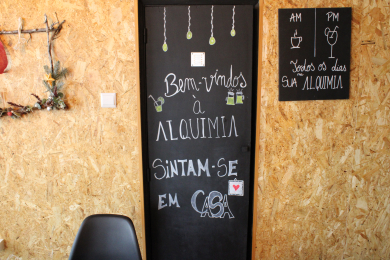 Bem-vindos
à
ALQUIMIA
SiNTAM-SE
EM CASA
AM PM
Todos os dias
SUA ALQUIMIA